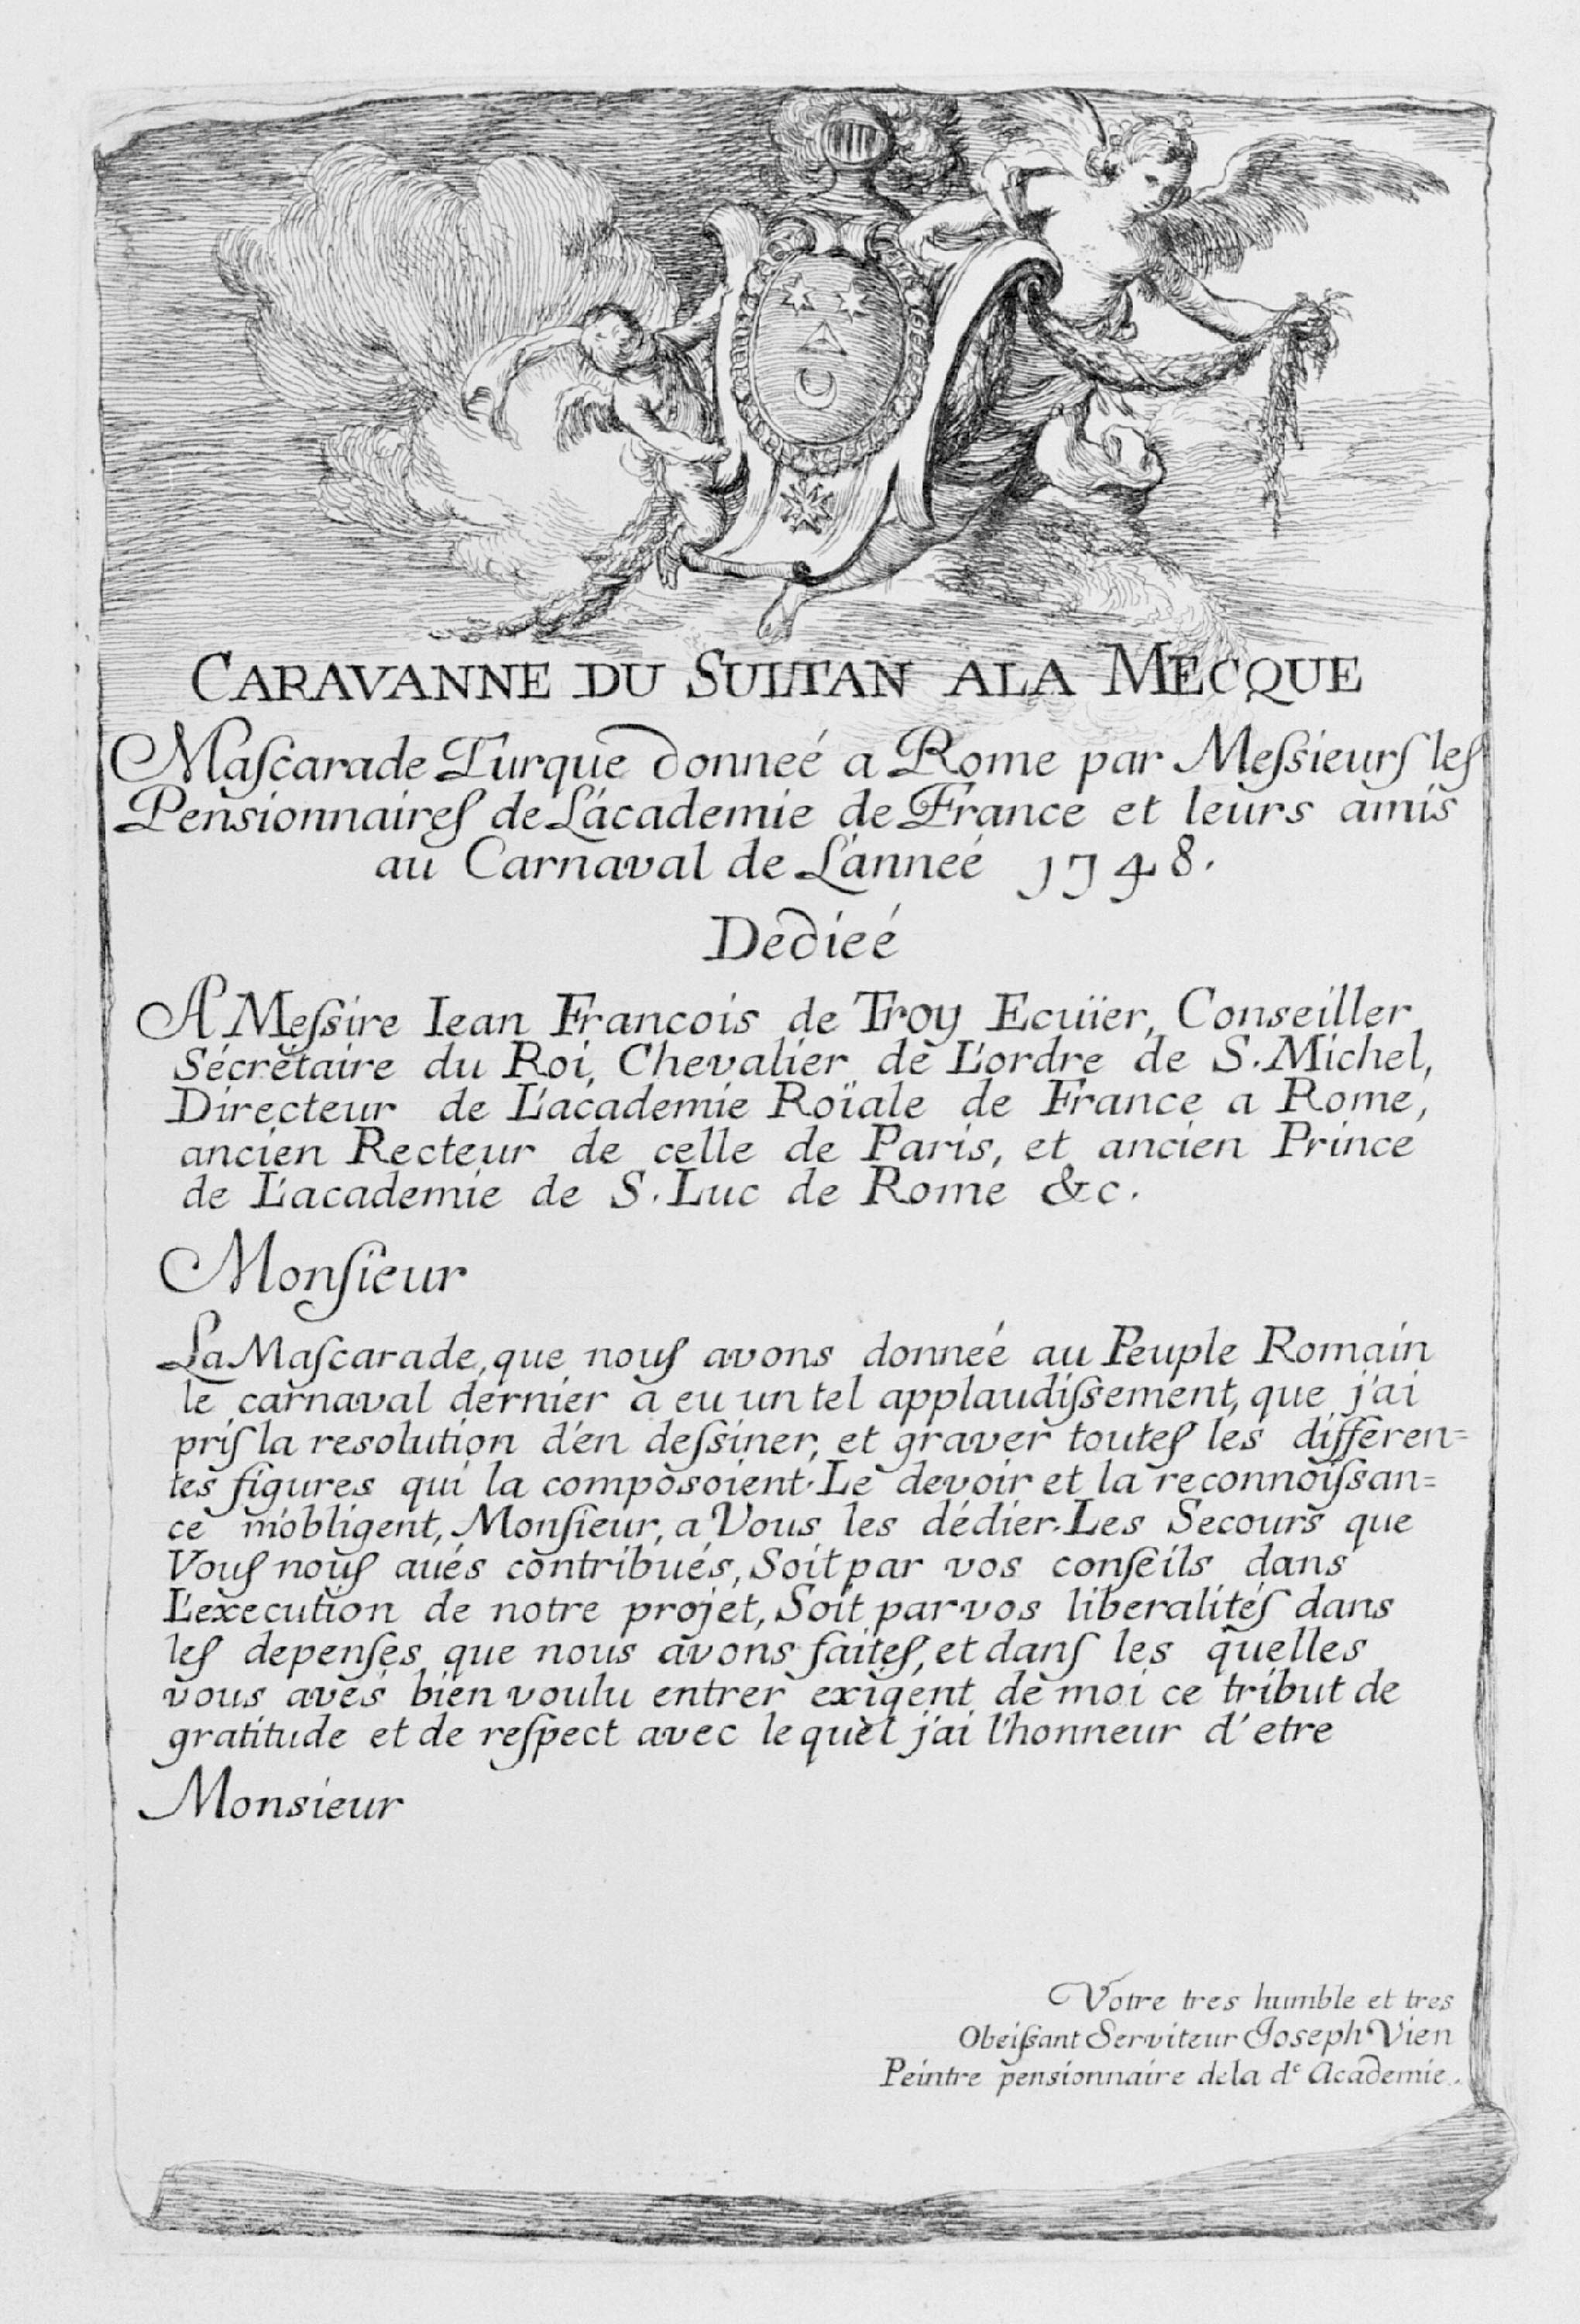 CARAVANNE DU SULTAN ALA MECQUE
Maſcarade Turque donneé a Rome par Meſsieurſ leſ
Pensionnaireſ de L'academie de France et leurs amis
au Carnaval de L'anneé 1748.
Dedieé
A Meſsire Iean Francois de Troy Ecuïer, Conseiller
Sécrétaire du Roi, Chevalier de L'ordre de S. Michel,
Directeur de L'academie Roïale de France a Rome,
ancien Recteur de celle de Paris, et ancien Prince
de L'academie de S. Luc de Rome &c.
Monſieur
La Maſcarade, que nouſ avons donneé au Peuple Romain
le carnaval dernier a eu un tel applaudiſsement, que j'ai
priſ la resolution d'en deſsiner, et graver touteſ les differen=
tes figures qui la composoient. Le devoir et la reconnoiſsan=
ce m'obligent, Monſieur, a Vous les dédier. Les Secours que
Vouſ nouſ aués contribués, Soit par vos conſeils dans
L'execution de notre projet, Soit par vos liberalitéſ dans
leſ depenſes que nous avons faiteſ, et danſ les quelles
vous avés bien voulu entrer exigent de moi ce tribut de
gratitude et de reſpect avec le quel j'ai l'honneur d'etre
Monsieur
Votre tres humble et tres
Obeiſsant Serviteur Joseph Vien
Peintre pensionnaire dela d.e Academie.